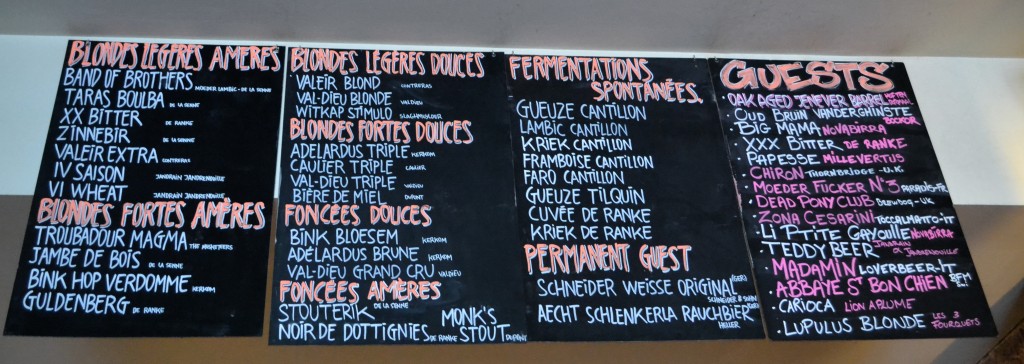 BLONDES LÉGÈRES AMÈRES
BAND OF BROTHERS MOEDER LAMBIC - DE LA SENNE
TARAS BOULBA DE LA SENNE
XX BITTER DE RANKE
ZINNEBIR DE LA SENNE
VALEIR EXTRA CONTRERAS
IV SAISON JANDRAIN JANDRENOUILLE
VI WHEAT JANDRAIN JANDRENOUILLE
BLONDES FORTES AMÈRES
TROUBADOUR MAGMA THE MUSKETEERS
JAMBE DE BOIS DE LA SENNE
BINK HOP VERDOMME KERKOM
GULDENBERG DE RANKE
BLONDES LÉGÈRES DOUCES
VALEIR BLOND CONTRERAS
VAL-DIEU BLONDE VALDIEU
WITKAP STIMULO SLAGHMUYLDER
BLONDES FORTES DOUCES
ADELARDUS TRIPLE KERKOM
CAULIER TRIPLE CAULIER
VAL-DIEU TRIPLE VALDIEU
BIÈRE DE MIEL DUPONT
FONCÉES DOUCES
BINK BLOESEM KERKOM
ADÉLARDUS BRUNE KERKOM
VAL-DIEU GRAND CRU VALDIEU
FONCÉES AMÈRES
STOUTERIK DE LA SENNE
NOIR DE DOTTIGNIES DE RANKE
MONK'S STOUT DUPONT
FERMENTATIONS
SPONTANÉES.
GUEUZE CANTILLON
LAMBIC CANTILLON
KRIEK CANTILLON
FRAMBOISE CANTILLON
FARO CANTILLON
GUEUZE TILQUIN
CUVÉE DE RANKE
KRIEK DE RANKE
PERMANENT GUEST
SCHNEIDER WEISSE ORIGINAL
SCHNEIDER & SOHN
AECHT SCHLENKERLA RAUCHBIER
HELLER
GUESTS
• OAK AGED JENEVER BARREL
• OUD BRUIN VANDERGHINSTE BOCKOR
• BIG MAMA NOVABIRRA
• XXX BITTER DE RANKE
• PAPESSE MILLEVERTUS
• CHIRON THORNBRIDGE - U.K
• MOEDER FUCKER N°3
• DEAD PONY CLUB BREWDOG - UK
• ZONA CESARINI TOCCALMATTO-IT
• LI P'TITE GAYOULLE NOVABIRRA
• TEDDY BEER JANDRAIN JANDRENOUILLE
• MADAMIN LOVERBEER-IT
• ABBAYE ST BON CHIEN BFM
• CARIOCA LION A PLUME
• LUPULUS BLONDE LES 3 FOURQUETS